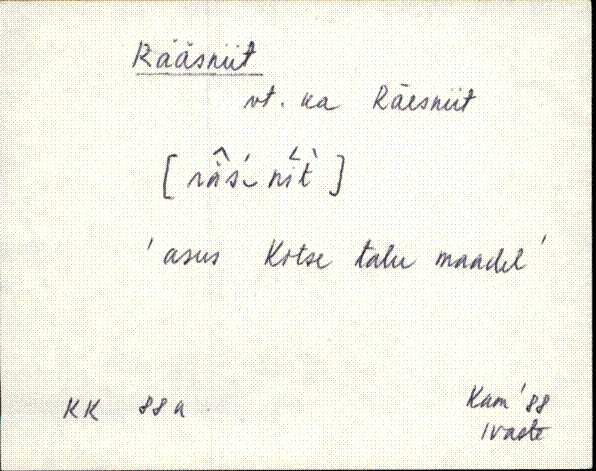 Rääsniit
vt. ka Räesniit
[ rä̂s´ nit̀ ]
' asus Kotse talu maadel '
KK 88 a Kam '88
Ivaste